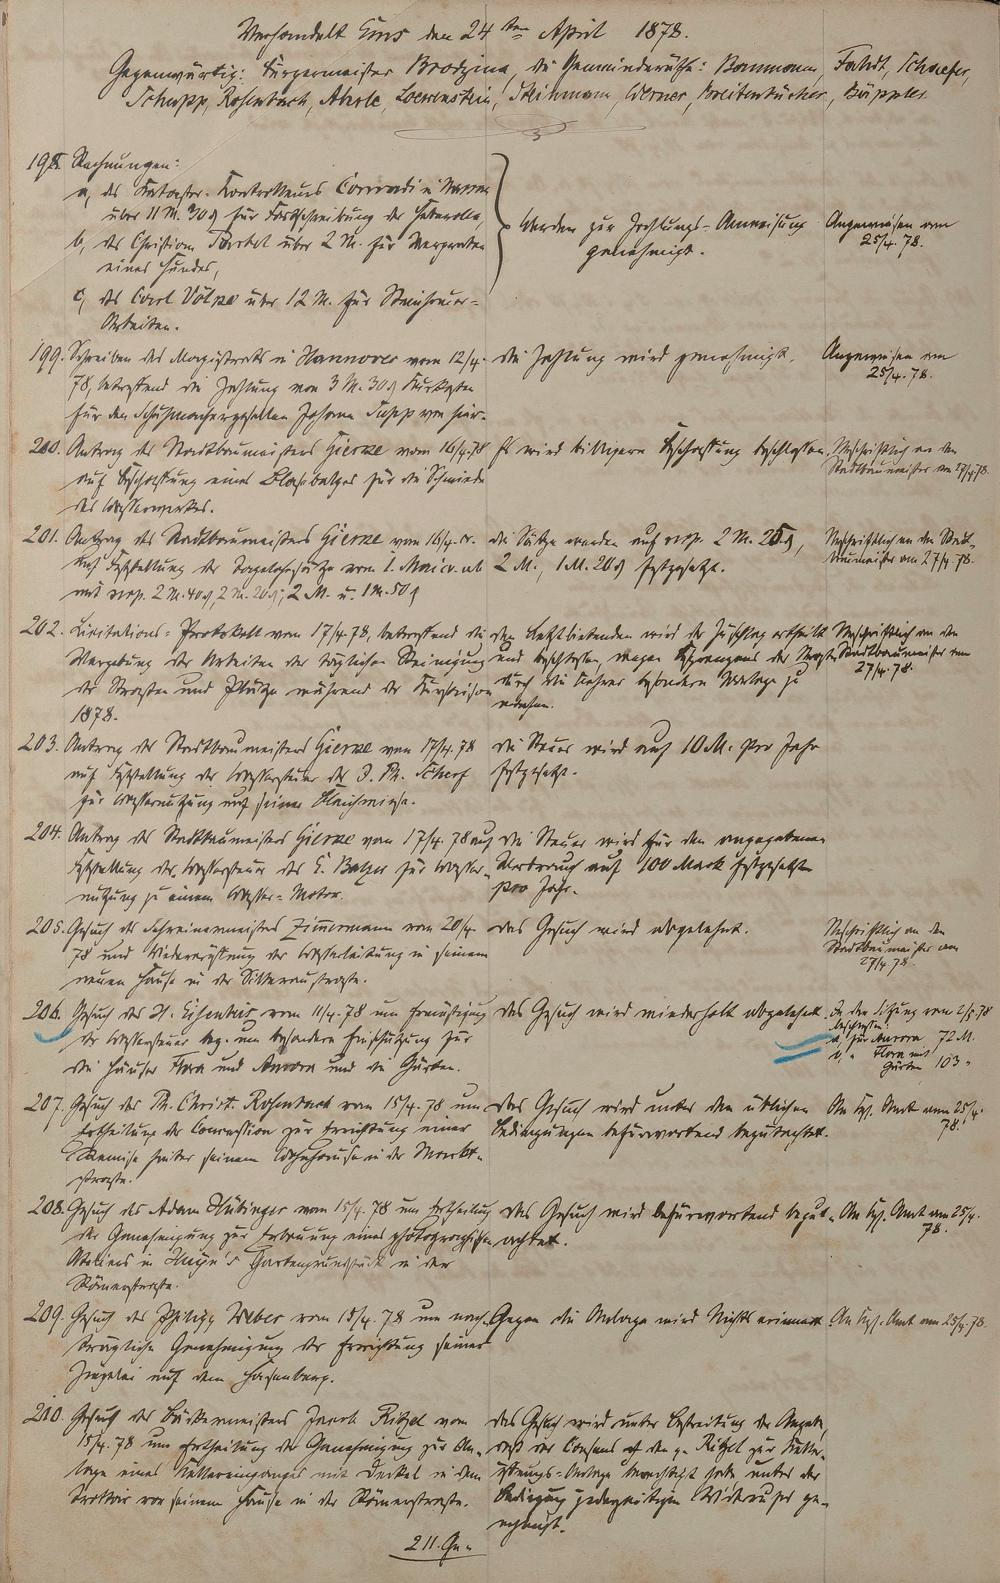 Verhandelt Ems den 24ten April 1878.
Gegenwärtig: Bürgermeister Brodzina, die Gemeinderäthe: Bommann, Fahdt, Schaefer,
Schupp, Rosenbach, Aberle, Loewenstein, Steinmann, Werner, Breitenbücher, Büppler
198. Rechnungen:
a, des Kataster-Kontrolleurs Conradi in Nassau
über 11 M. 30 für Fortschreibung der Heberolle,
b, des Christian über 2 M. für
eines Hundes,
c, des Carl Völpe über 12 M. für Steinhauer-
Arbeiten.
Werden zur Zahlungs-Anweisung
genehmigt.
Angewiesen am
25/4. 78.
199. Schreiben des Magistrats in Hannover vom 12/4.
78, betreffend die Zahlung von 3 M. 30 Kurkosten
für den Schuhmachergesellen Johann von hier.
die Zahlung wird genehmigt.
Angewiesen am
25/4. 78.
200. Antrag des Stadtbaumeisters Gierke vom 16/4. 78
auf Beschaffung eines Blasebalges für die Schmiede
des Wasserwerkes.
Es wird billigere Beschaffung beschlossen.
Abschriftlich an den
Stadtbaumeister am 27/4 78.
201. Antrag des Stadtbaumeisters Gierke vom 16/4. cr.
auf Feststellung der Tagelohnsätze vom 1. Mai cr. ab
mit resp. 2 M. 40, 2 M. 20, 2 M. u. 1 M. 50
die Sätze werden auf resp. 2 M. 25,
2 M., 1 M. 20 festgesetzt.
Abschriftlich an den Stadt-
baumeister am 27/4. 78.
202. Licitations-Protokoll vom 17/4. 78, betreffend die
Vergebung der Arbeiten der täglichen Reinigung
der Straßen und Plätze während der Kursaison
1878.
den Letztbietenden wird der Zuschlag ertheilt
und beschlossen, wegen Besprengens der Straßen
durch die besondere Vorlage zu
machen.
Abschriftlich an den
Stadtbaumeister am
27/4. 78.
203. Antrag des Stadtbaumeisters Gierke vom 17/4. 78
auf Feststellung der Wassersteuer des J. Ph. Scherf
für Wassernutzung auf seiner Bleichwiese.
die Steuer wird auf 10 M. pro Jahr
festgesetzt.
204. Antrag des Stadtbaumeisters Gierke vom 17/4. 78 auf
Feststellung der Wassersteuer des E. Balzer für Wasser-
nutzung zu einem Wasser-Motor.
die Steuer wird für den angegebenen
Verbrauch auf 100 Mark festgesetzt
pro Jahr.
205. Gesuch des Schreinermeisters Zimmermann vom 20/4.
78 um der Wasserleitung in seinem
neuen Hause in der Silberaustraße.
das Gesuch wird abgelehnt.
Abschriftlich an den
Stadtbaumeister am
27/4. 78.
206. Gesuch des H. vom 11/4. 78 um Ermäßigung
der Wassersteuer bez. um besondere Einschätzung für
die Häuser Flora und Aurora und die Gärten.
das Gesuch wird wiederholt abgelehnt.
In der Sitzung vom 2/5 78
beschlossen:
a, für Aurora 72 M.
b, " Flora mit
Garten 103 "
207. Gesuch des Ph. Christ. Rosenbach vom 15/4. 78 um
Ertheilung der Concession zur Errichtung einer
Remise hinter seinem Wohnhause in der Markt-
straße.
das Gesuch wird unter den üblichen
Bedingungen befürwortend begutachtet.
An Kgl. Amt am 25/4.
78.
208. Gesuch des Adam Hübinger vom 15/4. 78 um Ertheilung
der Genehmigung zur Erbauung eines photographischen
Ateliers in Gartengrundstück in der
Römerstraße.
das Gesuch wird befürwortend begut-
achtet.
An Kgl. Amt am 25/4.
78.
209. Gesuch des Philipp Weber vom 15/4. 78 um nach-
trägliche Genehmigung der Errichtung seiner
Ziegelei auf dem Hasenberg.
Gegen die Anlage wird Nichts erinnert.
An Kgl. Amt am 25/4. 78.
210. Gesuch des Bäckermeisters Jacob Ritzel vom
15/4. 78 um Ertheilung der Genehmigung zur An-
lage eines Kellereinganges mit Deckel in dem
Trottoir vor seinem Hause in der Römerstraße.
das Gesuch wird unter Bestreitung der Angabe,
daß der Consens den p. Ritzel zur Keller-
Anlage berechtigt habe, unter der
Bedingung jederzeitigen Widerrufs ge-
nehmigt.
211. Ge-